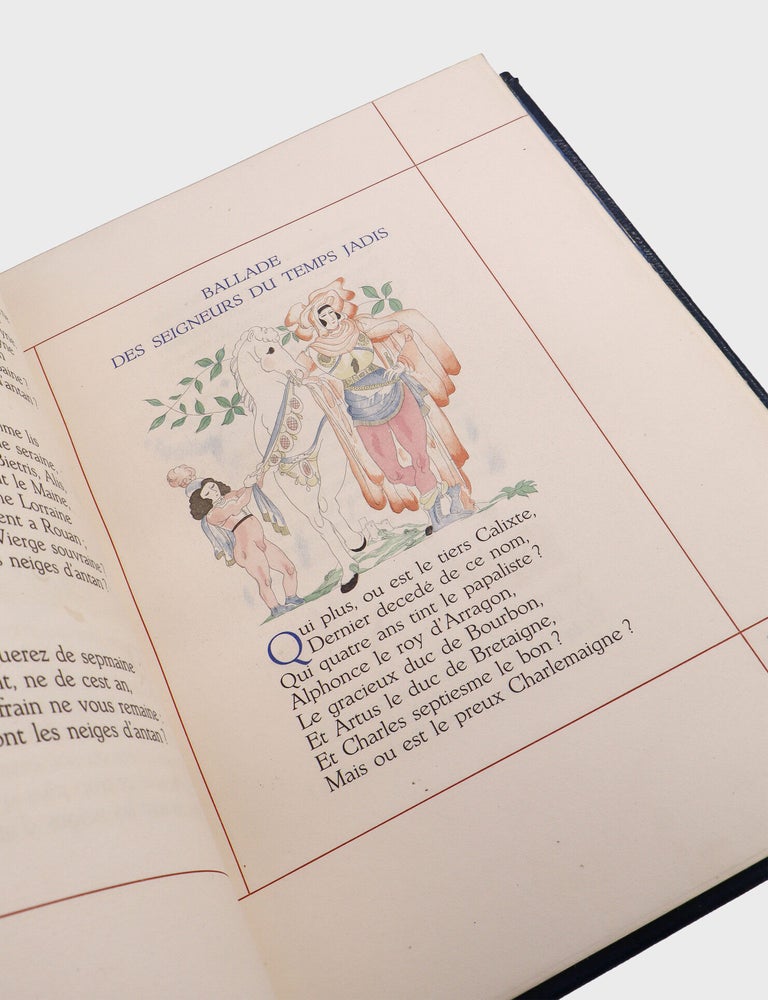 d'antan?
me lis
seraine,
Bietris, Alis
t le Maine,
ne Lorraine
ent a Rouan;
Vierge souvraine?
neiges d'antan?
uerez de sepmaine
nt, ne de cest an,
frain ne vous remaine:
ont les neiges d'antan?
BALLADE
DES SEIGNEURS DU TEMPS JADIS
Qui plus, ou est le tiers Calixte,
Dernier decedé de ce nom,
Qui quatre ans tint le papaliste?
Alphonce le roy d'Arragon,
Le gracieux duc de Bourbon,
Et Artus le duc de Bretaigne,
Et Charles septiesme le bon?
Mais ou est le preux Charlemaigne?